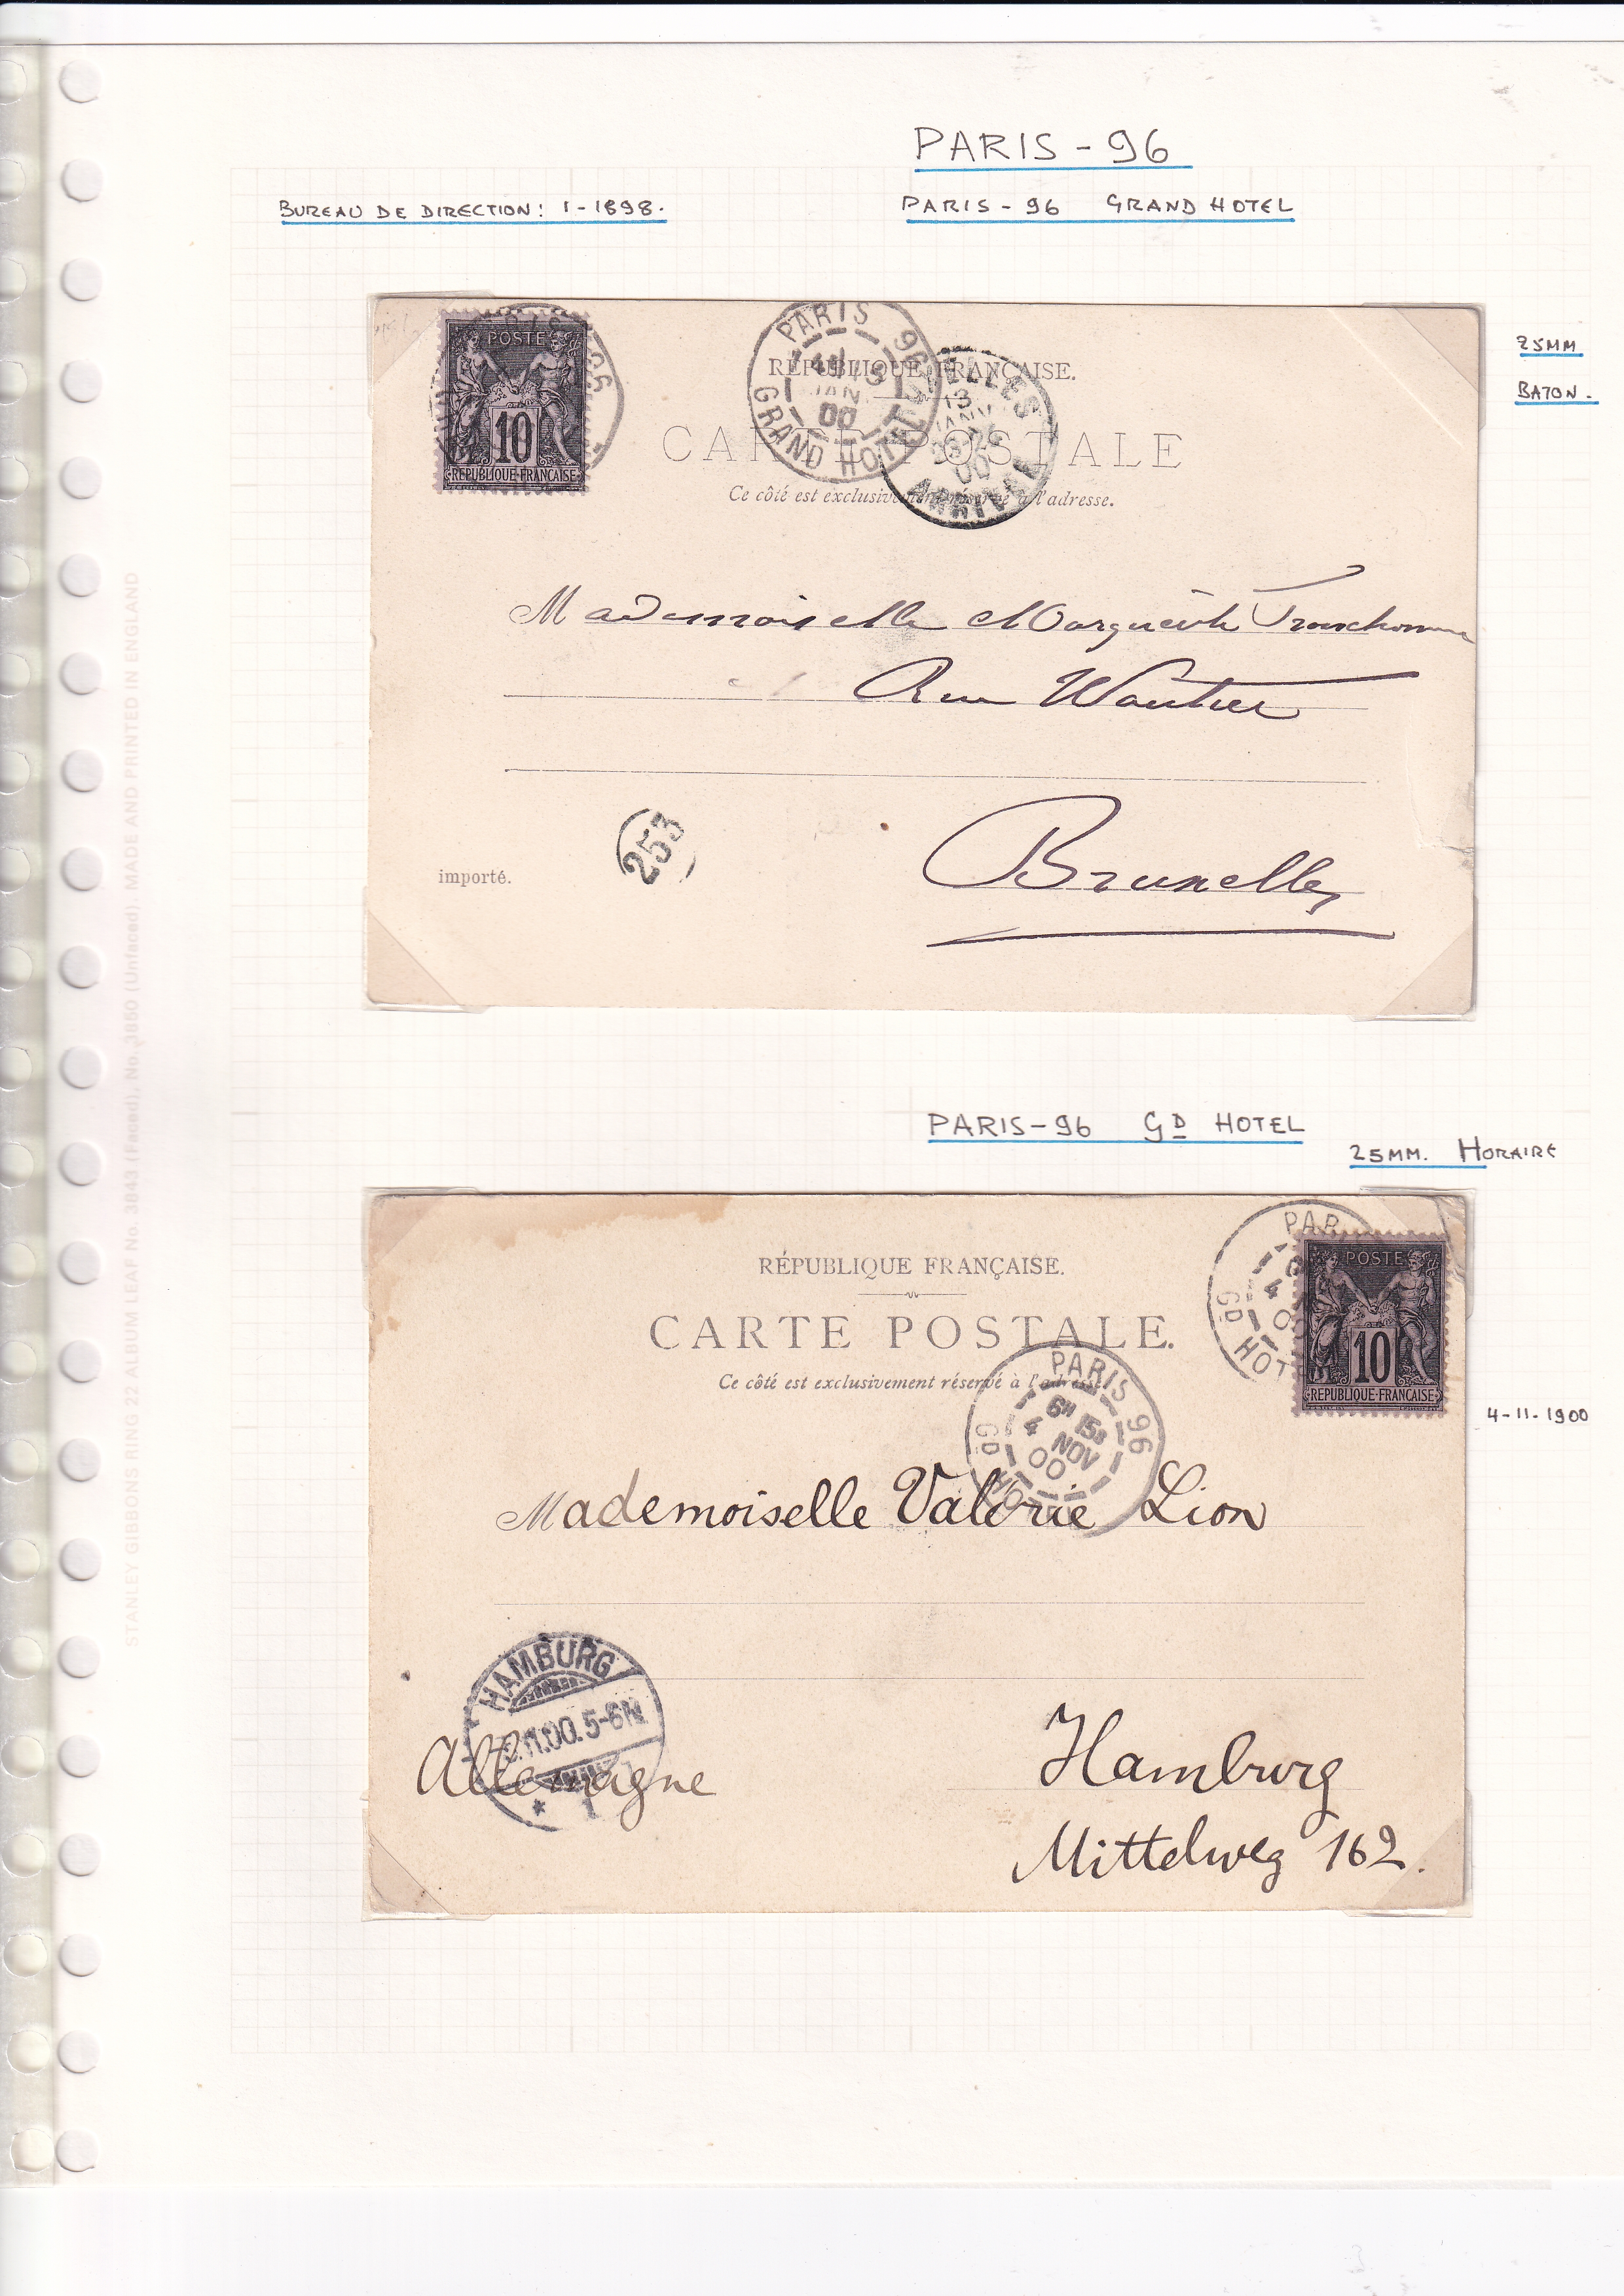 PARIS - 96
BUREAU DE DIRECTION: 1-1898.
PARIS - 96 GRAND HOTEL
25MM
BATON.
POSTE
10
REPUBLIQUE·FRANÇAISE
PARIS 96
JANV
00
GRAND HOTEL
13
JANV
00
ARRIVAL
RÉPUBLIQUE FRANÇAISE.
CARTE POSTALE
Ce côté est exclusivement réservé à l'adresse.
Mademoiselle Marguerite
Rue Wautier
253
importé.
Bruxelles
PARIS-96 GD HOTEL
25MM. HORAIRE
RÉPUBLIQUE FRANÇAISE.
CARTE POSTALE.
Ce côté est exclusivement réservé à l'adresse.
PAR
4
00
GD HOT
POSTE
10
REPUBLIQUE·FRANÇAISE
PARIS 96
6H 15S
4 NOV
00
GD HO
4-11-1900
Mademoiselle Valérie Lion
HAMBURG
.11.00.5-6N.
* 1
Allemagne
Hamburg
Mittelweg 162.
STANLEY GIBBONS RING 22 ALBUM LEAF No. 3843 (Faced), No. 3860 (Unfaced). MADE AND PRINTED IN ENGLAND